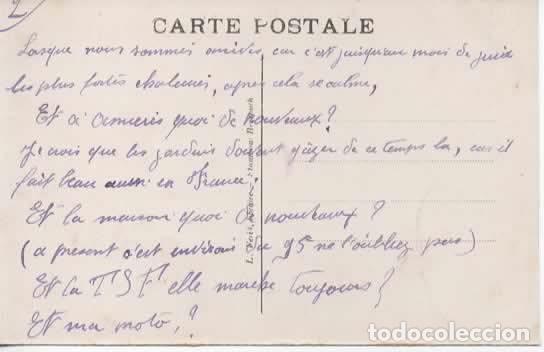 2
CARTE POSTALE
Lorsque nous sommes arrivés, car c'est jusquau mois de juin
les plus fortes chaleurs, apres cela se calme,
Et à Asnieres quoi de nouveaux?
Je crois que les jardins doivent de ce temps la, car il
fait beau aussi en France.
Et la maison quoi de nouveaux?
(a present c'est environ du 95 ne l'oubliez pas)
Et la TSF elle marche toujours?
Et ma moto,?
todocoleccion